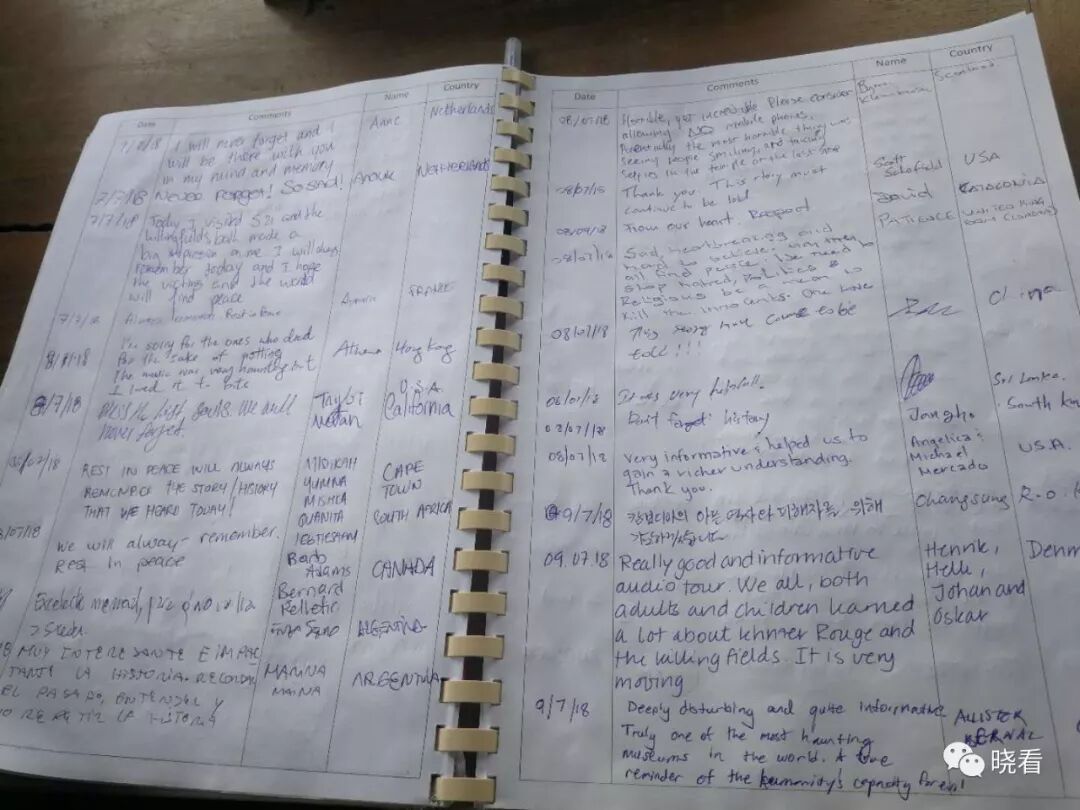 Date Comments Name Country
7/8/18 I will never forget and I Anne Netherlands
will be there with you
in my mind and memory
7/7/18 Never Forget! So sad! Anouk Netherlands
7/7/18 Today I visited S21 and the
killingfields both made a
big impression on me. I will always
remember today and I hope
the victims and the world
will find peace
FRANCE
7/7/18
I'm sorry for the ones who died Athena Hong Kong
for the sake of nothing
The music was very haunting but
I loved it to bits
/7/18 lost souls. We will U.S.A.
never forget. California
08/07/18 REST IN PEACE WILL ALWAYS CAPE
REMEMBER THE STORY/HISTORY YUMNA TOWN
THAT WE HEARD TODAY! MISHCA SOUTH AFRICA
QUANITA
/07/18 We will always remember. Barb CANADA
Rest in peace Adams
Bernard
Pelletier
Excelente ARGENTINA
MUY INTERESANTE E IMPAC MARINA ARGENTINA
TANTE LA HISTORIA. RECORDAR
EL PASADO, ENTENDER Y
NO REPETIR LA HISTORIA
Date Comments Name Country
08/07/18 Horrible, yet incredible Please consider Scotland
allowing NO mobile phones,
Potentially the most horrible thing was
seeing people smiling, and taking
selfies in the temple on the last stop
08/07/18 Thank you. This story must Scott Schofield USA
continue to be told
From our heart. Respect David CATALONIA
08/07/18 Sad, heartbreaking and PATIENCE UNITED KINGDOM (LONDON)
hard to believe.
all and peace. We need to
stop hatred, Politics &
Religious be a mean to
kill the innocents. One love
08/07/18 This story have come to be China
told!!!
08/07/18 It was very helpfull. Sri Lanka.
08/07/18 Don't forget history Jongho South K
08/07/18 Very informative & helped us to Angelica & U.S.A.
gain a richer understanding. Michael
Thank you. Mercado
9/7/18 캄보디아의 아픈 역사와 피해자들을 위해 Changsung R.O.
09.07.18 Really good and informative Henrik, Denm
audio tour. We all, both Helle,
adults and children learned Johan and
a lot about Khmer Rouge and Oskar
the killing fields. It is very
moving
9/7/18 Deeply disturbing and quite informative ALLISTER
Truly one of the most haunting BERNAL
museums in the world. A true
reminder of the humanity's capacity for evil!
晓看